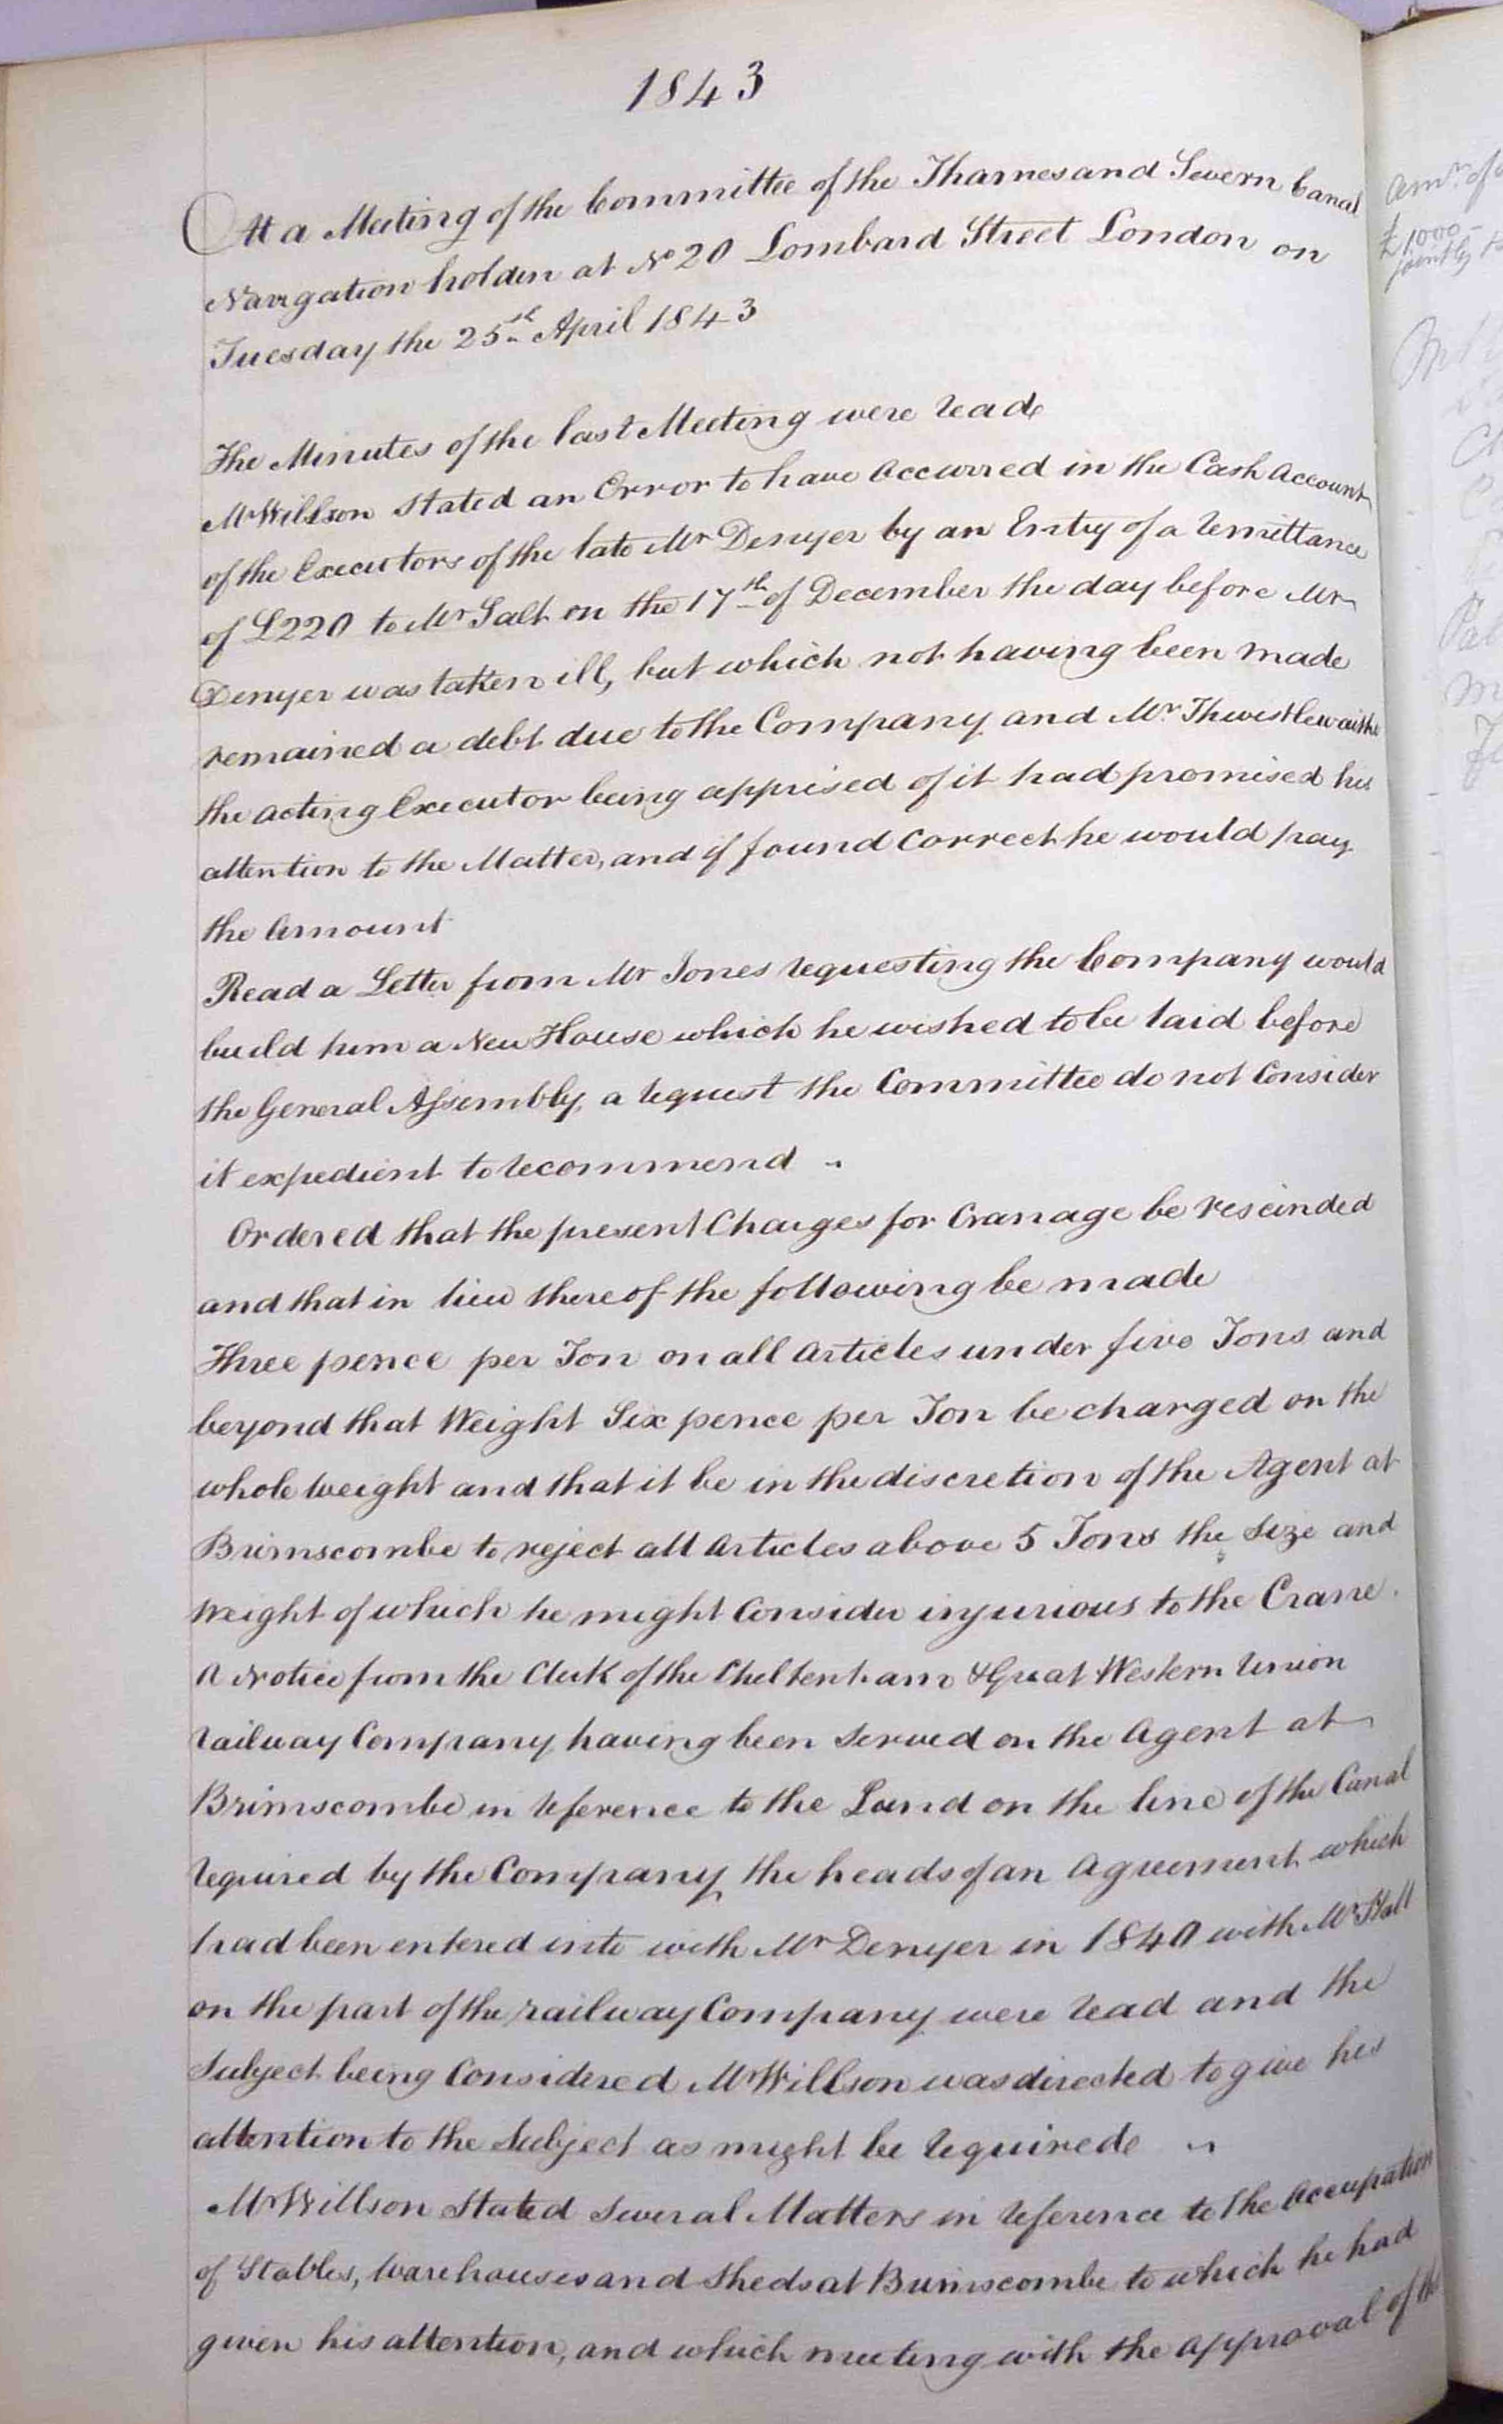 1843
At a Meeting of the Committee of the Thames and Severn Canal
Navigation holden at No 20 Lombard Street London on
Tuesday the 25th April 1843
The Minutes of the last Meeting were read
Mr Willson stated an Error to have occurred in the Cash Account
of the Executors of the late Mr Denyer by an Entry of a remittance
of £220 to Mr Salt on the 17th of December the day before Mr
Denyer was taken ill, but which not having been made
remained a debt due to the Company and Mr Thwistlewaithe
the acting Executor being apprised of it had promised his
attention to the Matter, and if found correct he would pay
the Amount
Read a Letter from Mr Jones requesting the Company would
build him a New House which he wished to be laid before
the General Assembly, a request the Committee do not Consider
it expedient to recommend
Ordered that the present Charges for Cranage be rescinded
and that in lieu thereof the following be made
Three pence per Ton on all Articles under five Tons and
beyond that Weight Six pence per Ton be charged on the
whole weight and that it be in the discretion of the Agent at
Brimscombe to reject all Articles above 5 Tons the Size and
Weight of which he might Consider injurious to the Crane.
A Notice from the Clerk of the Cheltenham & Great Western Union
Railway Company having been served on the Agent at
Brimscombe in reference to the Land on the line of the Canal
required by the Company the heads of an Agreement which
had been entered into with Mr Denyer in 1840 with Mr Hall
on the part of the railway Company were read and the
Subject being Considered Mr Willson was directed to give his
attention to the Subject as might be required
Mr Willson Stated several Matters in reference to the Occupation
of Stables, Warehouses and Sheds at Brimscombe to which he had
given his attention, and which meeting with the approval of the
Amn of
£1000-
jointly